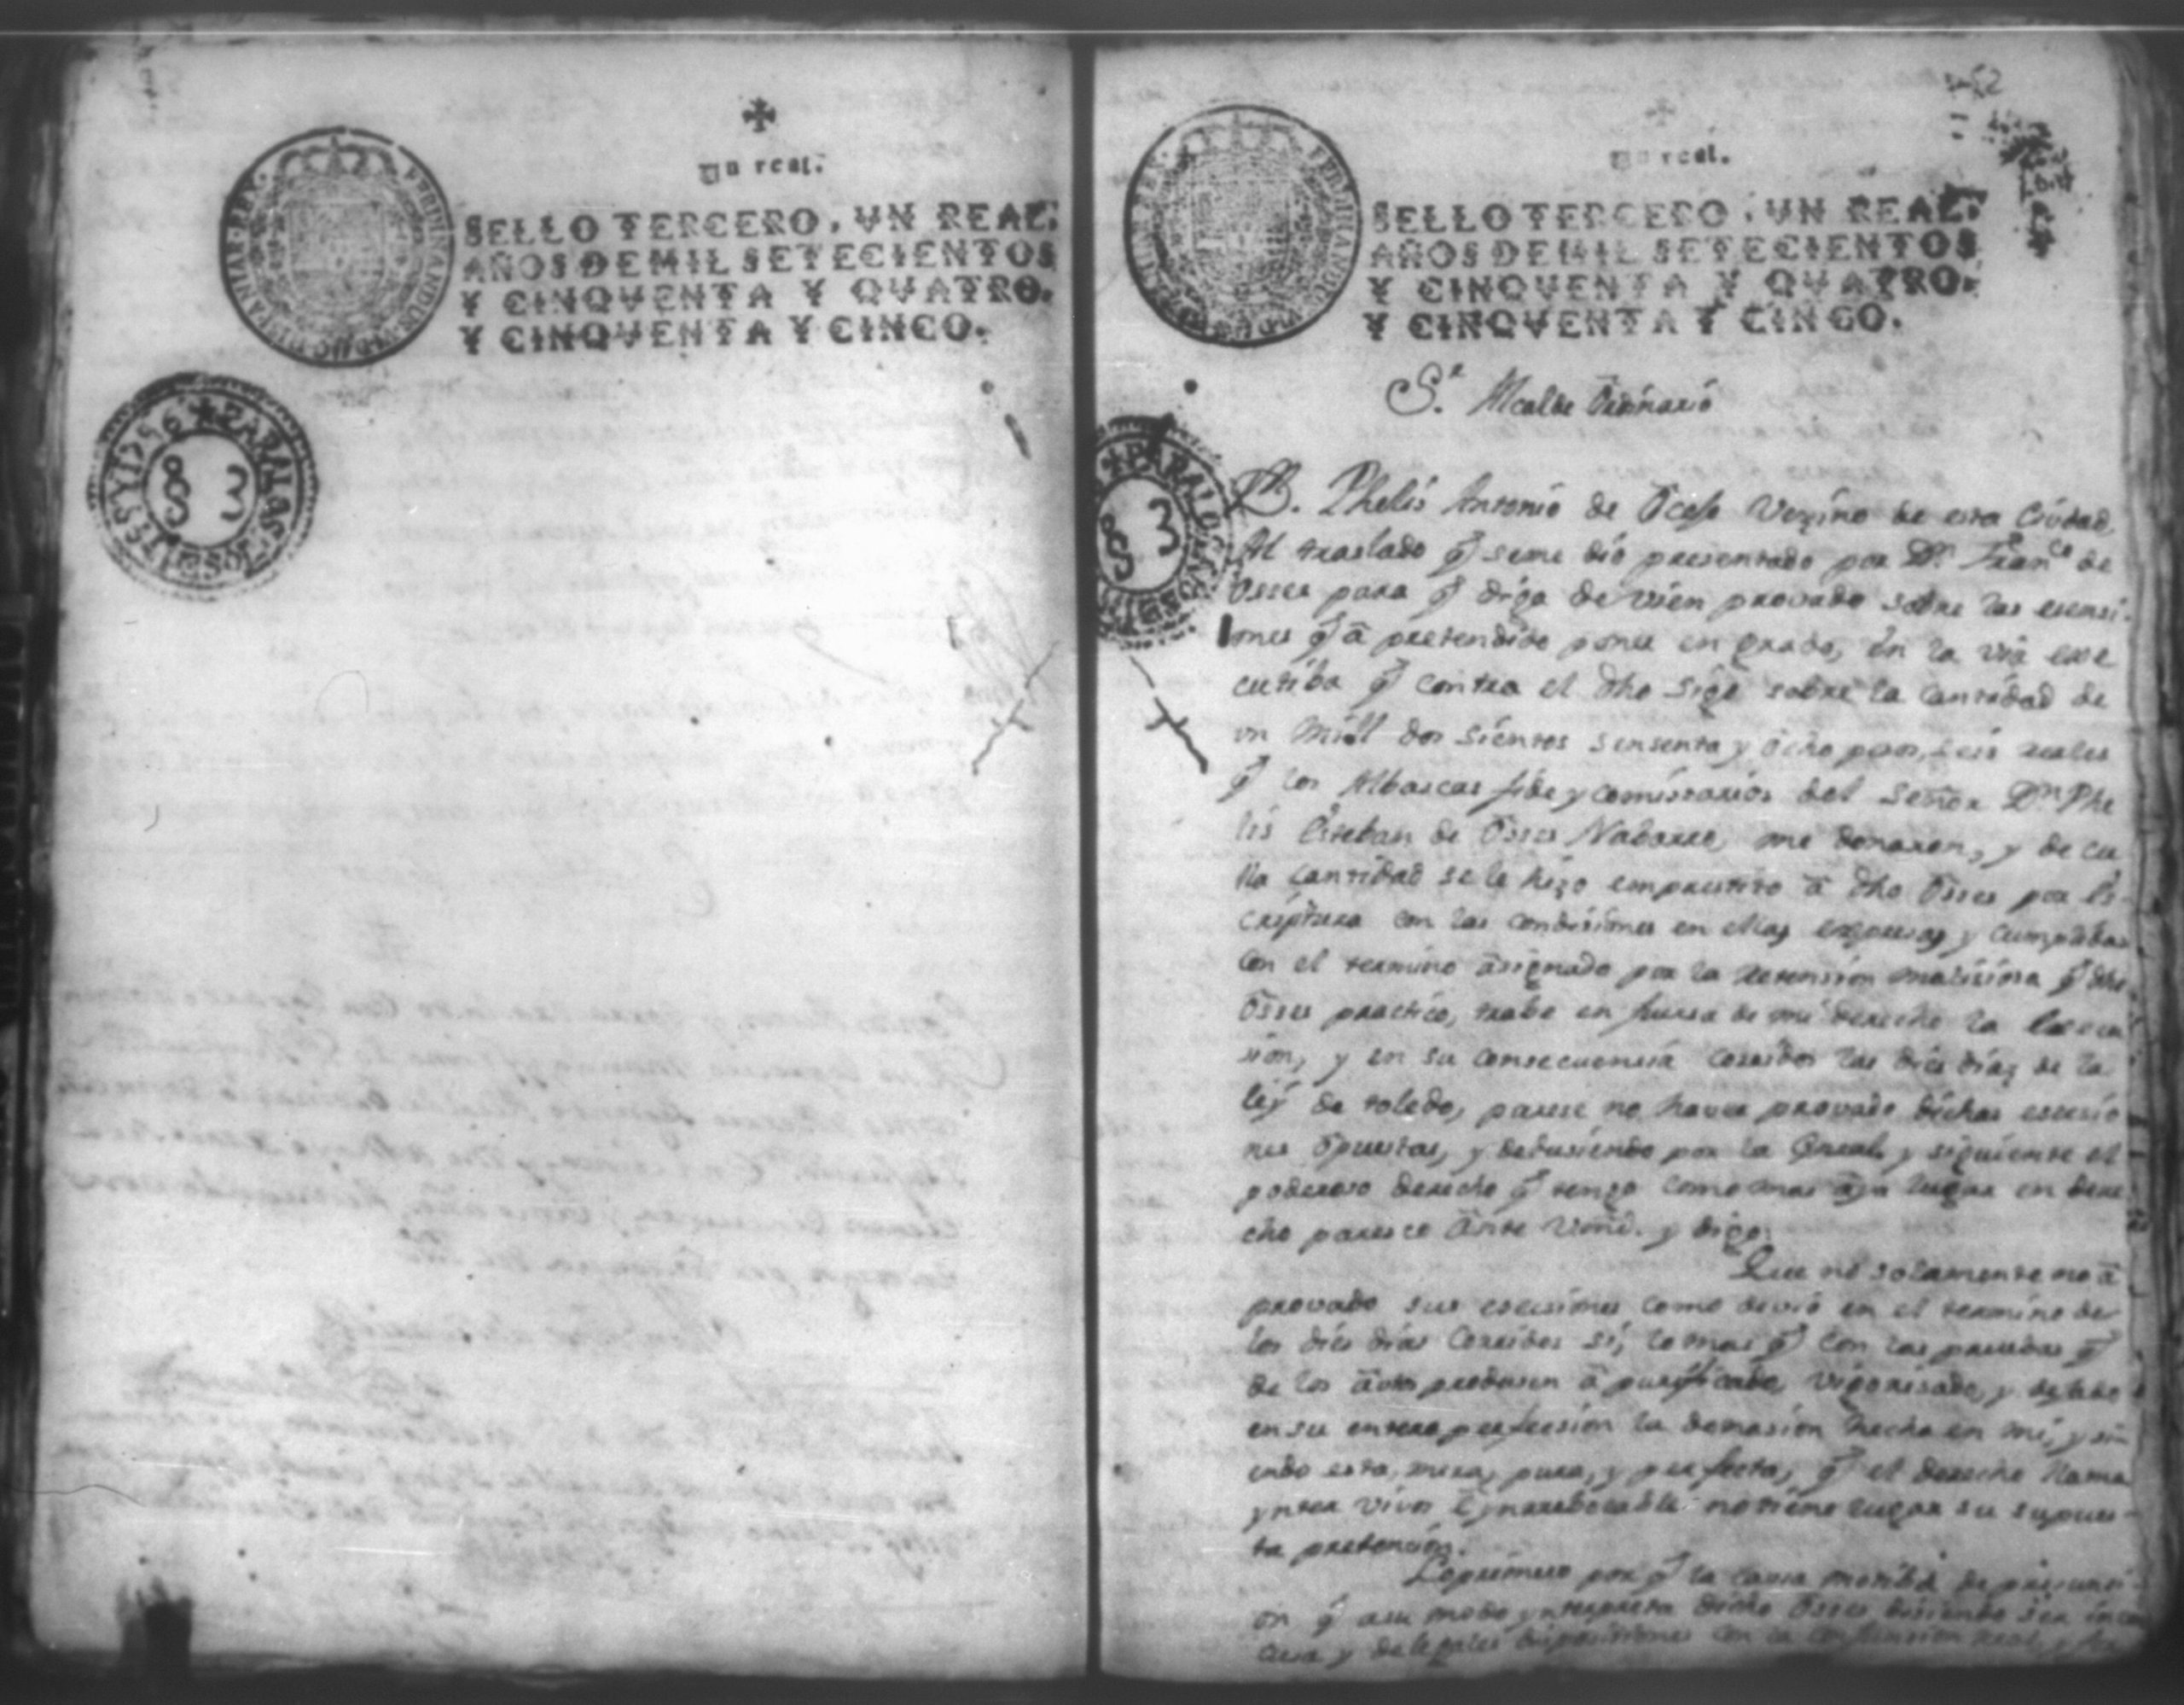 un real.
SELLO TERCERO, VN REAL,
AÑOS DE MIL SETECIENTOS
Y CINQVENTA Y QVATRO,
Y CINQVENTA Y CINCO.
un real.
SELLO TERCERO, VN REAL,
AÑOS DE MIL SETECIENTOS
Y CINQVENTA Y QVATRO,
Y CINQVENTA Y CINCO.
S.r Alcalde Ordinario
D. Phelis Antonio de Vezino de esta Ciudad
Al traslado q̃ seme dio presentado por Dn. Franco de
Osses para q̃ diga de vien provado sobre las
ones q̃ â pretendido poner en grado, en la via exe
cutiba q̃ contra el dho sigo sobre la cantidad de
un mill dos sientos sensenta y ocho pesos, seis reales
q̃ los Albaseas fidey comissarios del Señor Dn Phe
lis Esteban de Osses Nabarro, me donaron, y de cu
lla cantidad se le hizo emprestito â dho Osses por es
criptura con las condisiones en ellas expresas y cumplidas
con el termino asignado por la retension malisiosa q̃ dho
Osses practico, trabe en fuersa de mi derecho la execu
sion, y en su consecuensia corridos los dies dias de la
ley de toledo, parese no haver provado dichas escesio
nes opuestas, y dedusiendo por la y siguiente el
poderoso derecho q̃ tengo como mas aya lugar en dere
cho paresco ante Vmd. y digo.
Que no solamente no â
provado sus escesiones como devio en el termino de
los dies dias corridos si, lo mas q̃ con las pruebas q̃
de los autos produsen â purificado, vigorisado, y dejado
en su entera perfecsion la donasion hecha en mi, y si
endo esta, mera, pura, y perfecta, q̃ el derecho llama
ynter vivos é ynrrebocable no tiene lugar su supues-
ta pretencion.
Lo primero por q̃ la causa motiba de presunsi
on q̃ asu modo ynterpreta dicho Osses disiendo ser
y de legales disposisiones con la